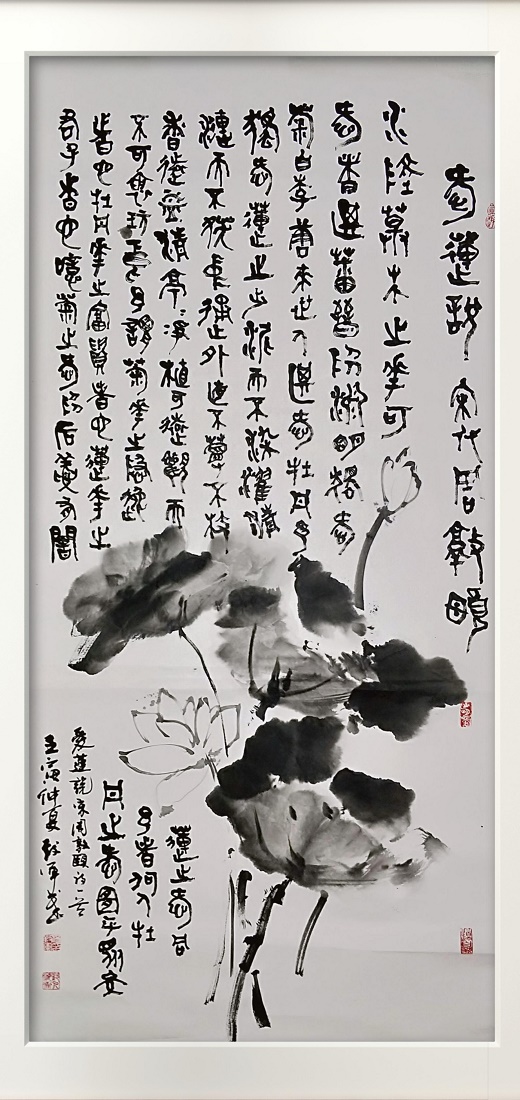 愛蓮說 宋代周敦頤
水陸草木之華可
愛者甚蕃晉陶淵明獨愛
菊自李唐來世人甚愛牡丹予
獨愛蓮之出淤泥而不染濯清
漣而不妖中通外直不蔓不枝
香遠益清亭亭凈植可遠觀而
不可褻玩焉予謂菊華之隱逸
者也牡丹華之富貴者也蓮華之
君子者也噫菊之愛陶后鮮有聞
蓮之愛同
予者何人牡
丹之愛宜乎眾矣
愛蓮說宋周敦頤詩一首
壬寅仲夏